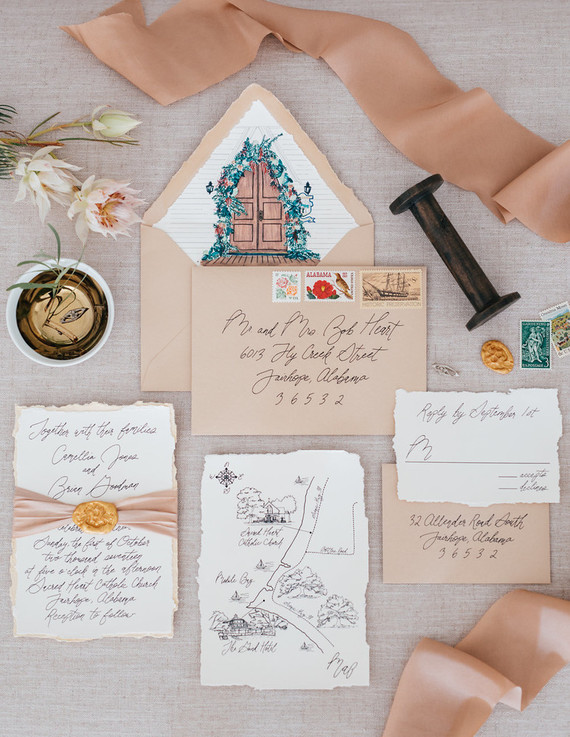 ALABAMA
Mr and Mrs Bob Heart
6013 Fly Creek Street
Fairhope, Alabama
36532
Reply by September 1st
M
accepts
declines
32 Allender Road South
Fairhope, Alabama
36532
Together with their families
Camellia Jones
and
Brian Goodman
Sunday the first of October
two thousand seventeen
at five o'clock in the afternoon
Sacred Heart Catholic Church
Fairhope, Alabama
Reception to follow
Sacred Heart
Catholic Church
Mobile Bay
The Grand Hotel
Map